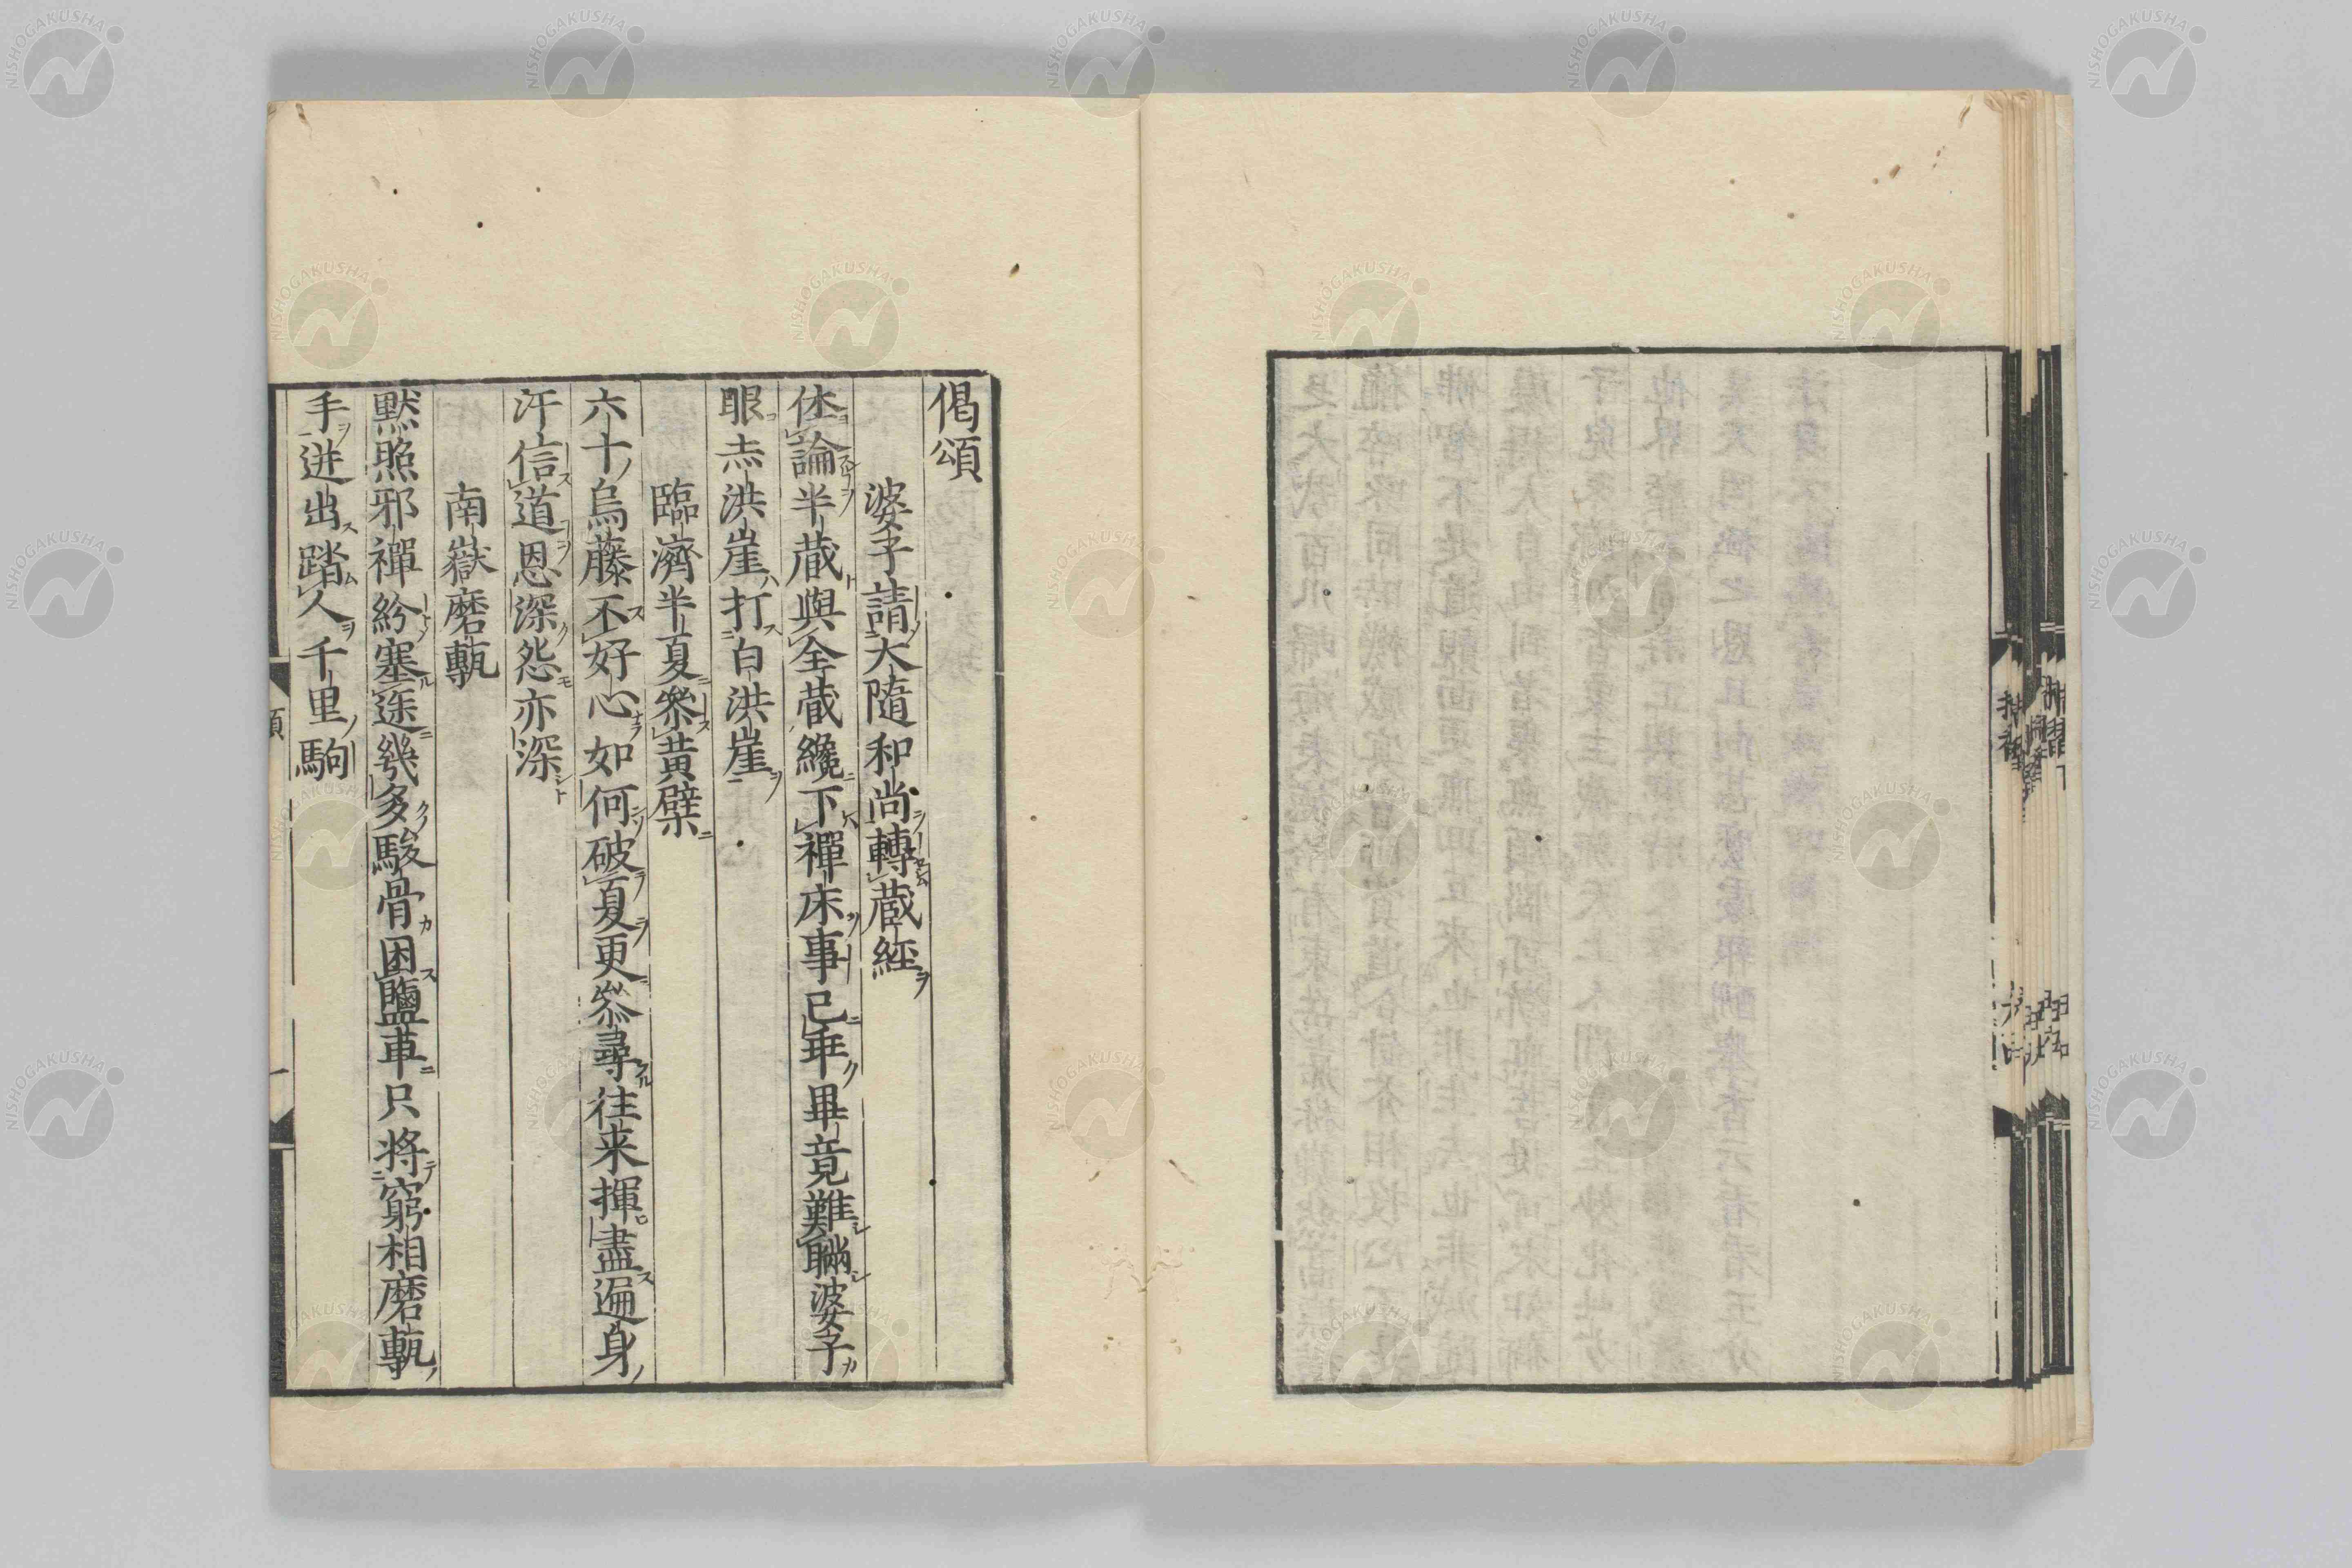 偈頌
婆子請大隨和尚轉蔵經
休論半蔵與全蔵纔下禪床事已乖畢竟難瞞婆子
眼赤洪崖打白洪崖
臨濟半夏叅黃檗
六十烏藤不好心如何破夏更叅尋往来揮盡遍身
汗信道恩深怨亦深
南嶽磨甎
黙照邪禪紛塞途幾多駿骨困鹽車只將窮相磨甎
手迸出踏人千里駒
NISHOGAKUSHA